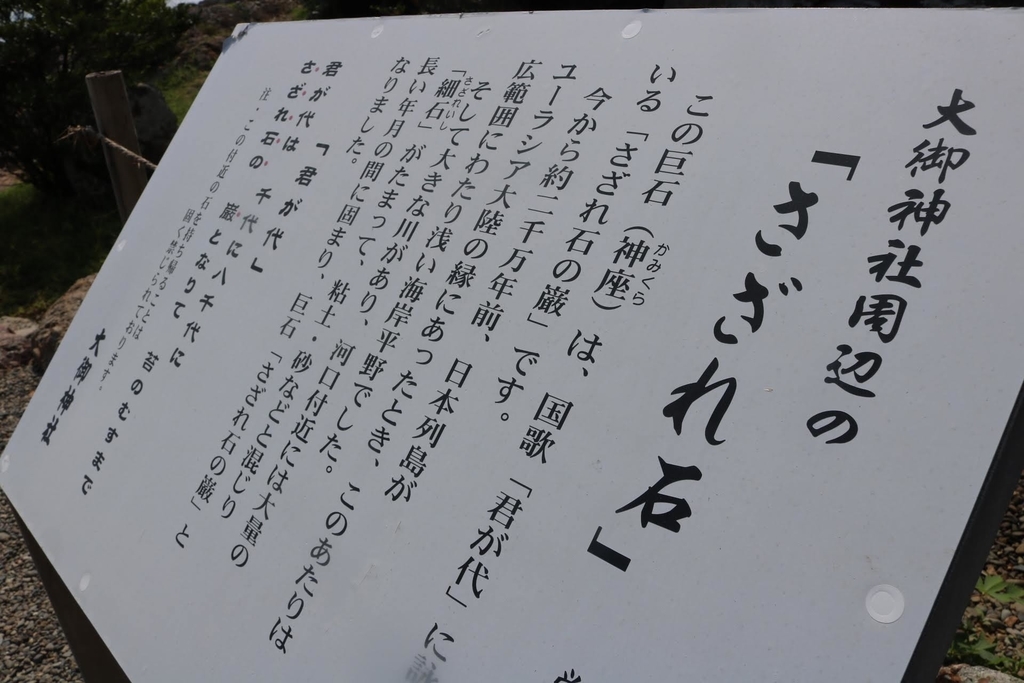 大御神社周辺の
「さざれ石」
この巨石（神座）は、国歌「君が代」に詠
かみくら
いる「さざれ石の巌」です。
今から約二千万年前、日本列島が
ユーラシア大陸の縁にあったとき、このあたりは
広範囲にわたり浅い海岸平野でした。
そして大きな川があり、河口付近には大量の
「細石」がたまって、粘土・砂などと混じり
さざれいし
長い年月の間に固まり、巨石「さざれ石の巌」と
なりました。
「君が代」
君が代は 千代に八千代に
さざれ石の 巌となりて 苔のむすまで
注・この付近の石を持ち帰ることは
固く禁じられております。
大御神社